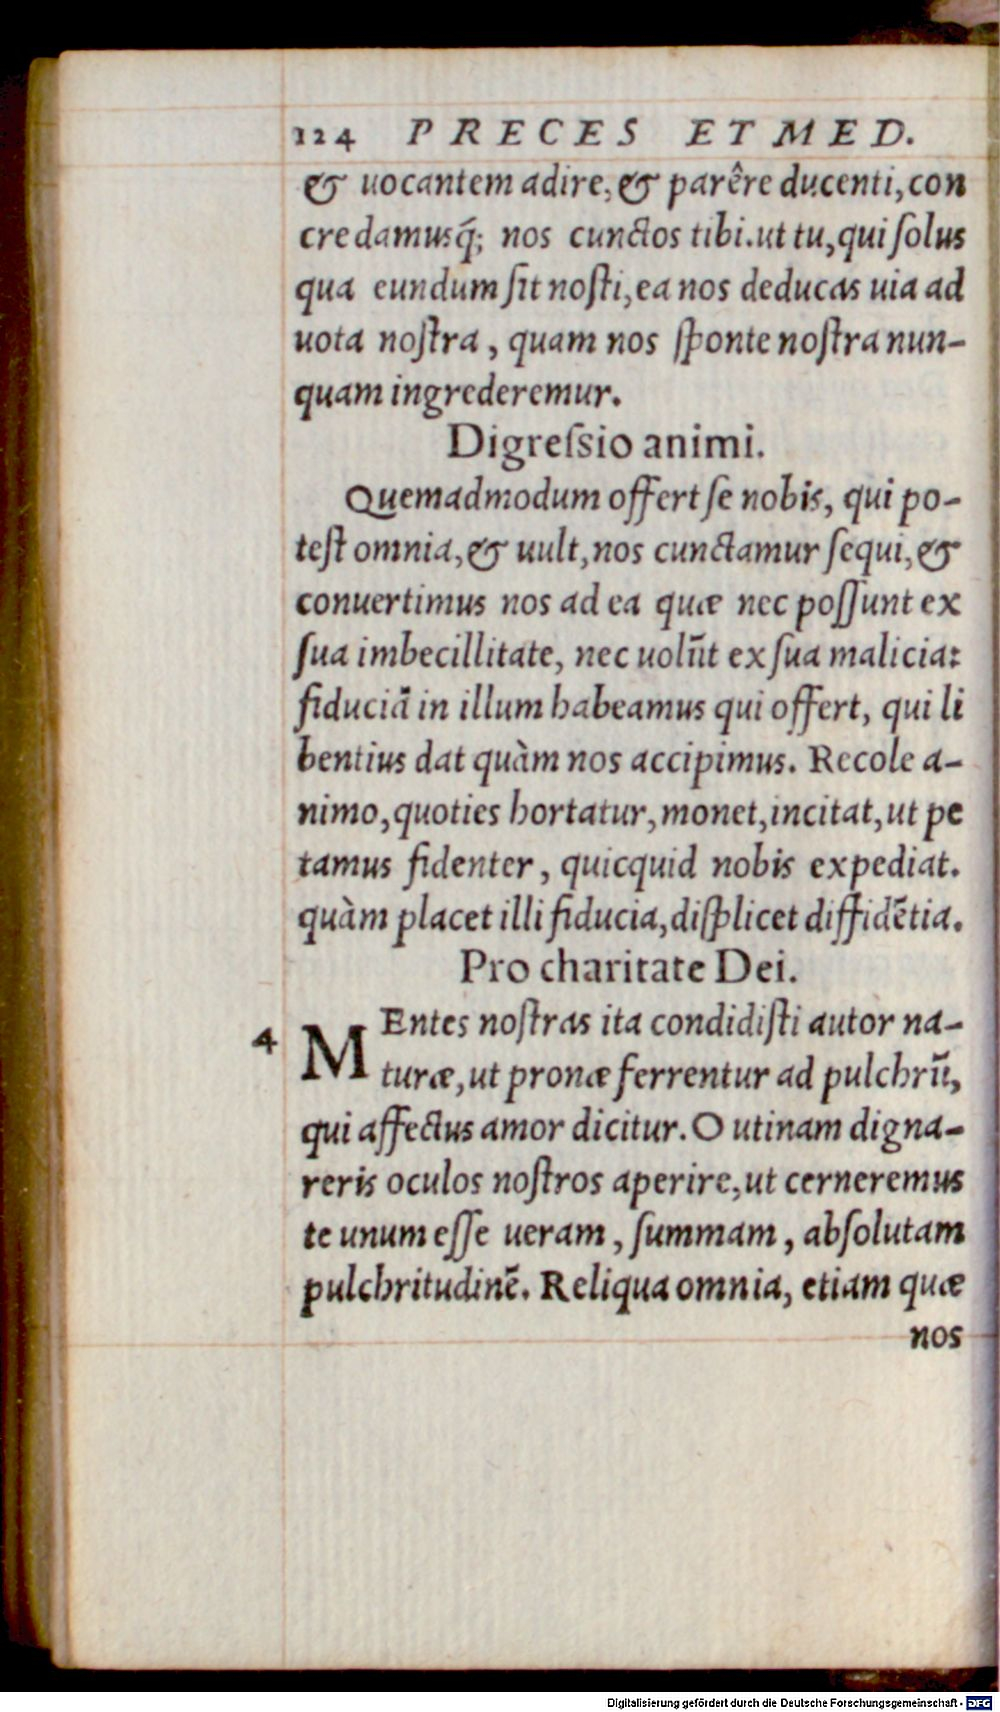 124 PRECES ET MED.
& uocantem adire, & parêre ducenti, con
credamusq́; nos cunctos tibi. ut tu, qui ſolus
qua eundum ſit noſti, ea nos deducas uia ad
uota noſtra, quam nos ſponte noſtra nun-
quam ingrederemur.
Digreſsio animi.
Quemadmodum offert ſe nobis, qui po-
teſt omnia, & uult, nos cunctamur ſequi, &
conuertimus nos ad ea quæ nec poſſunt ex
ſua imbecillitate, nec uolūt ex ſua malicia:
fiduciā in illum habeamus qui offert, qui li
bentius dat quàm nos accipimus. Recole a-
nimo, quoties hortatur, monet, incitat, ut pe
tamus fidenter, quicquid nobis expediat.
quàm placet illi fiducia, diſplicet diffidētia.
Pro charitate Dei.
4 MEntes noſtras ita condidiſti autor na-
turæ, ut pronæ ferrentur ad pulchrū,
qui affectus amor dicitur. O utinam digna-
reris oculos noſtros aperire, ut cerneremus
te unum eſſe ueram, ſummam, abſolutam
pulchritudinē. Reliqua omnia, etiam quæ
nos
Digitalisierung gefördert durch die Deutsche Forschungsgemeinschaft - DFG